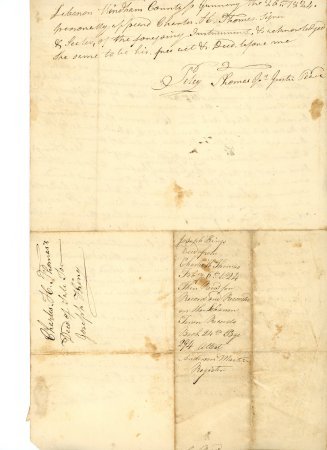 Lebanon Windham County ss January the 26th 1824
personally appeared Charles H. Thomas Signer
& Sealer of the foregoing Instrument & acknowledged
the same to be his free act & Deed before me
Peleg Thomas Jr Justice Peace
Charles H. Thomas
Deed of Sale to
Joseph King
Joseph Kings
Deed from
Charles H Thomas
1824
then Recd for
Record and Recorded
on
Town Records
Book 24th Page
294 Attest
Anderson Martin
Register